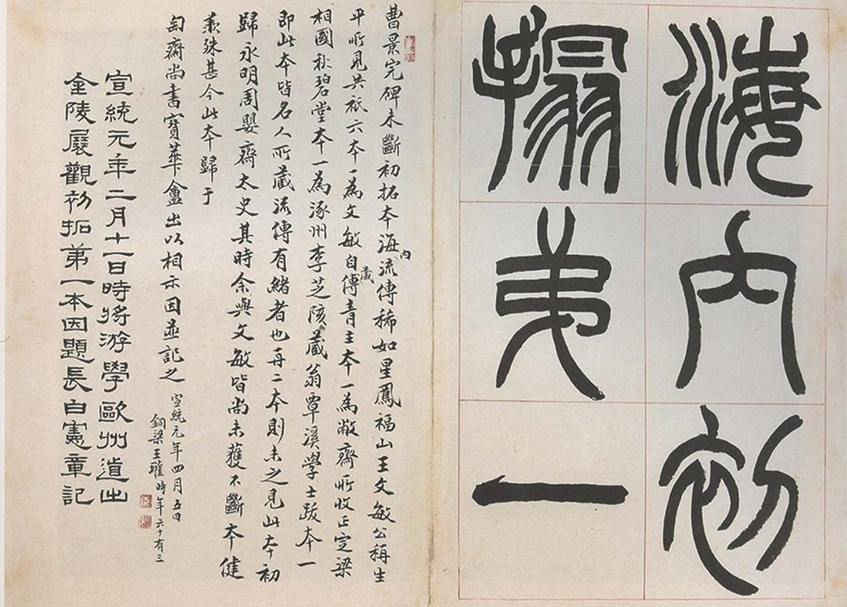 海內初
搨弟一
曹景完碑未斷初拓本海内流傳稀如星鳳福山王文敏公稱生
平所見共祇六本一為文敏自藏傳青主本一為敝齋所收正定梁
相國秋碧堂本一為涿州李芝陔藏翁覃溪學士跋本一
即此本皆名人所藏流傳有緒者也再二本則未之見此本初
歸永明周嬰齋太史其時余與文敏皆尚未獲不斷本健
羨殊甚今此本歸于
匋齋尚書寶華盦出以相示因並記之宣統元年四月五日
銅梁王瓘時年六十有三
宣統元年二月十一日時將游學歐州道出
金陵展觀初拓第一本因題長白憲章記